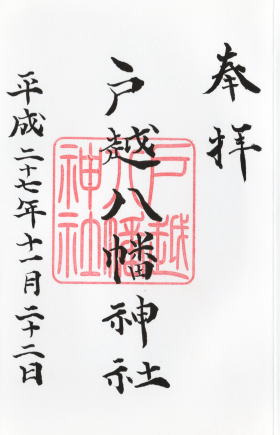 奉拝
戸越八幡神社
戸越八幡神社
平成二十七年十一月二十二日